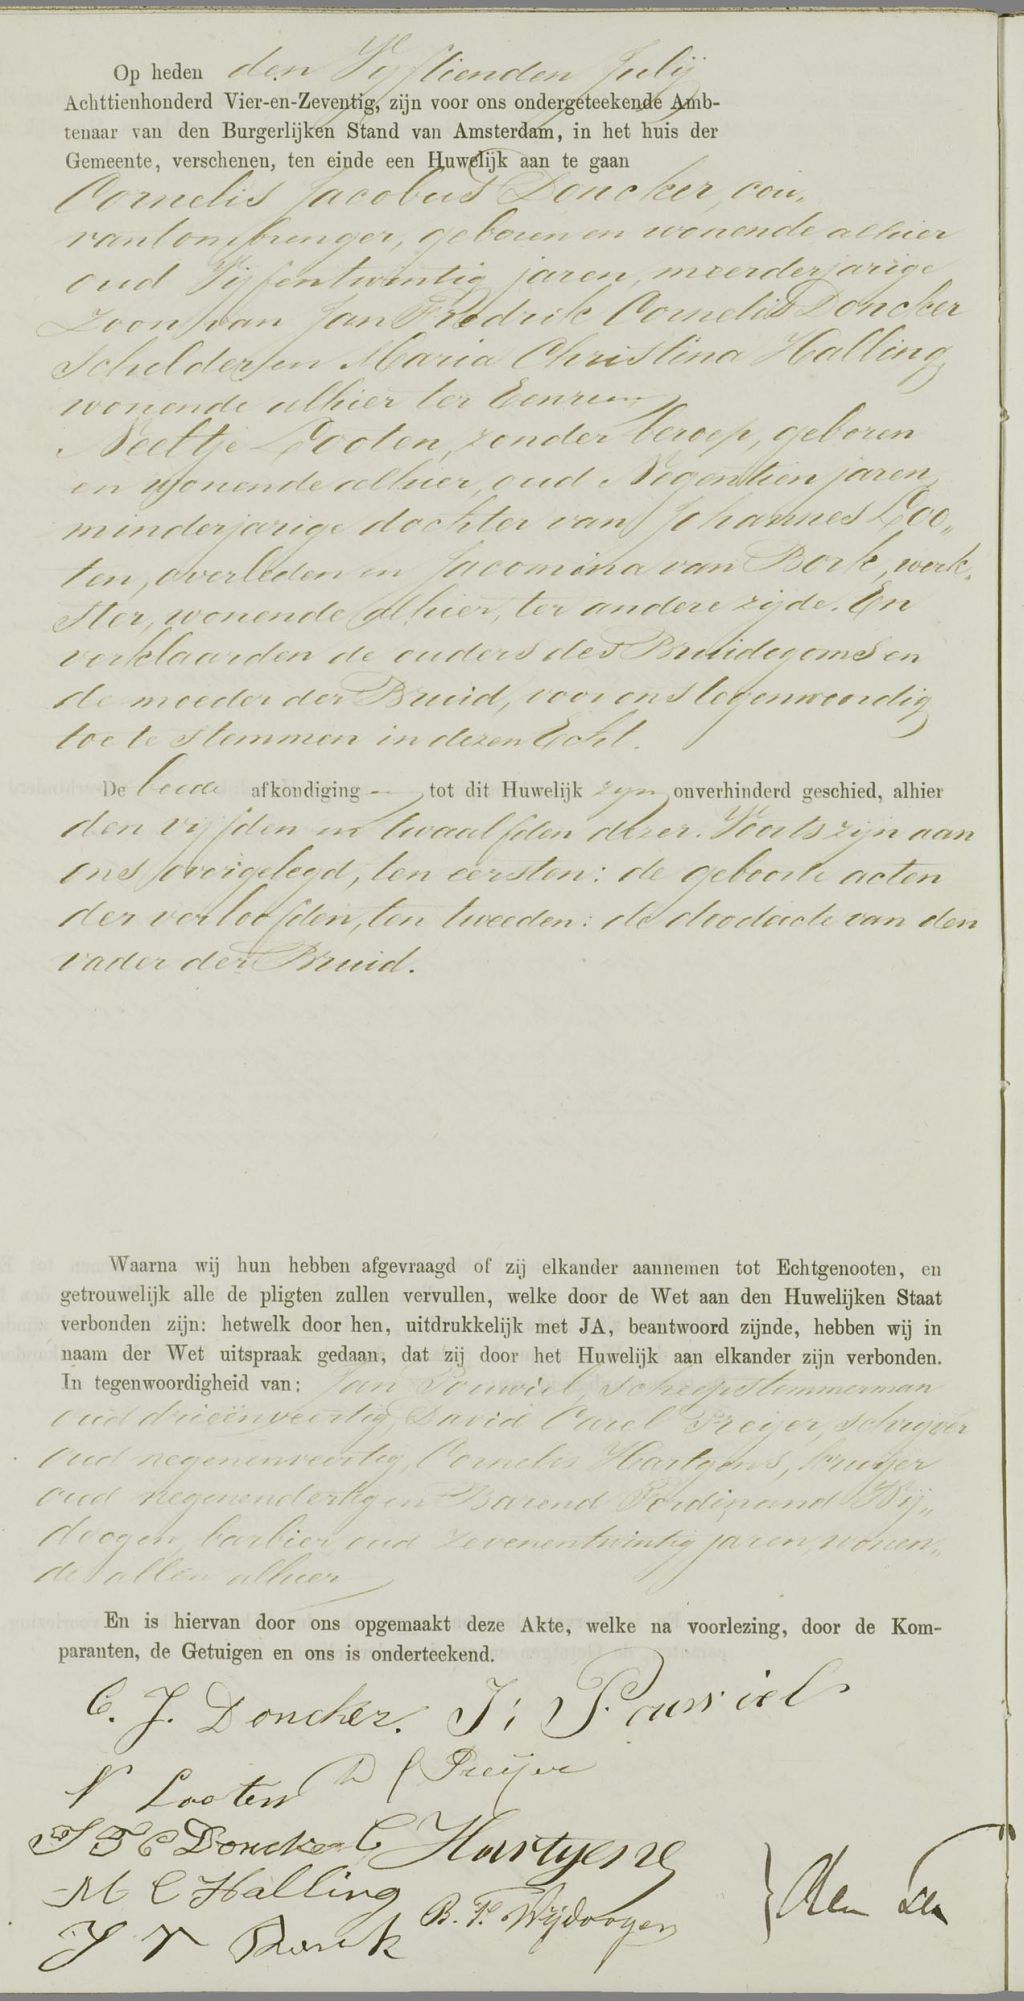 Op heden den Vijftienden Julij
Achttienhonderd Vier-en-Zeventig, zijn voor ons ondergeteekende Amb-
tenaar van den Burgerlijken Stand van Amsterdam, in het huis der
Gemeente, verschenen, ten einde een Huwelijk aan te gaan
Cornelis Jacobus Doncker, cou,
rantombrenger, geboren en wonende alhier
oud Vijfentwintig jaren, meerderjarige
zoon van Jan Fredrik Cornelis Doncker
Schelder en Maria Christina Halling,
wonende alhier ter Eenre en
Neeltje Looten, zonder beroep, geboren
en wonende alhier, oud Negentien jaren,
minderjarige dochter van Johannes Loo„
ten, overleden en Jacomina van Bork, werk,
ster, wonende alhier, ter andere zijde. En
verklaarden de ouders des Bruidegoms en
de moeder der Bruid, voor ons tegenwoordig
toe te stemmen in dezen Echt.
De beide afkondiging — tot dit Huwelijk zijn onverhinderd geschied, alhier
den vijfden en twaalfden dezer. Voorts zijn aan
ons overgelegd, ten eersten: de geboorte acten
der verloofden, ten tweeden: de doodacte van den
vader der Bruid.
Waarna wij hun hebben afgevraagd of zij elkander aannemen tot Echtgenooten, en
getrouwelijk alle de pligten zullen vervullen, welke door de Wet aan den Huwelijken Staat
verbonden zijn: hetwelk door hen, uitdrukkelijk met JA, beantwoord zijnde, hebben wij in
naam der Wet uitspraak gedaan, dat zij door het Huwelijk aan elkander zijn verbonden.
In tegenwoordigheid van: Jan Pouwiel, Scheepstimmerman
oud drieënveertig, David Carel Preijer, Schrijver
oud negenenveertig, Cornelis Hartgens, kruijer
oud negenendertig en Barend Ferdinand Wij„
doogen, barbier, oud zevenentwintig jaren, wonen„
de allen alhier
En is hiervan door ons opgemaakt deze Akte, welke na voorlezing, door de Kom-
paranten, de Getuigen en ons is onderteekend.
C. J. Doncker. J: Pouwiel
N Looten D C Preijer
J F C Doncker C Hartgens
M C Halling B. F. Wijdoogen
J V Borck